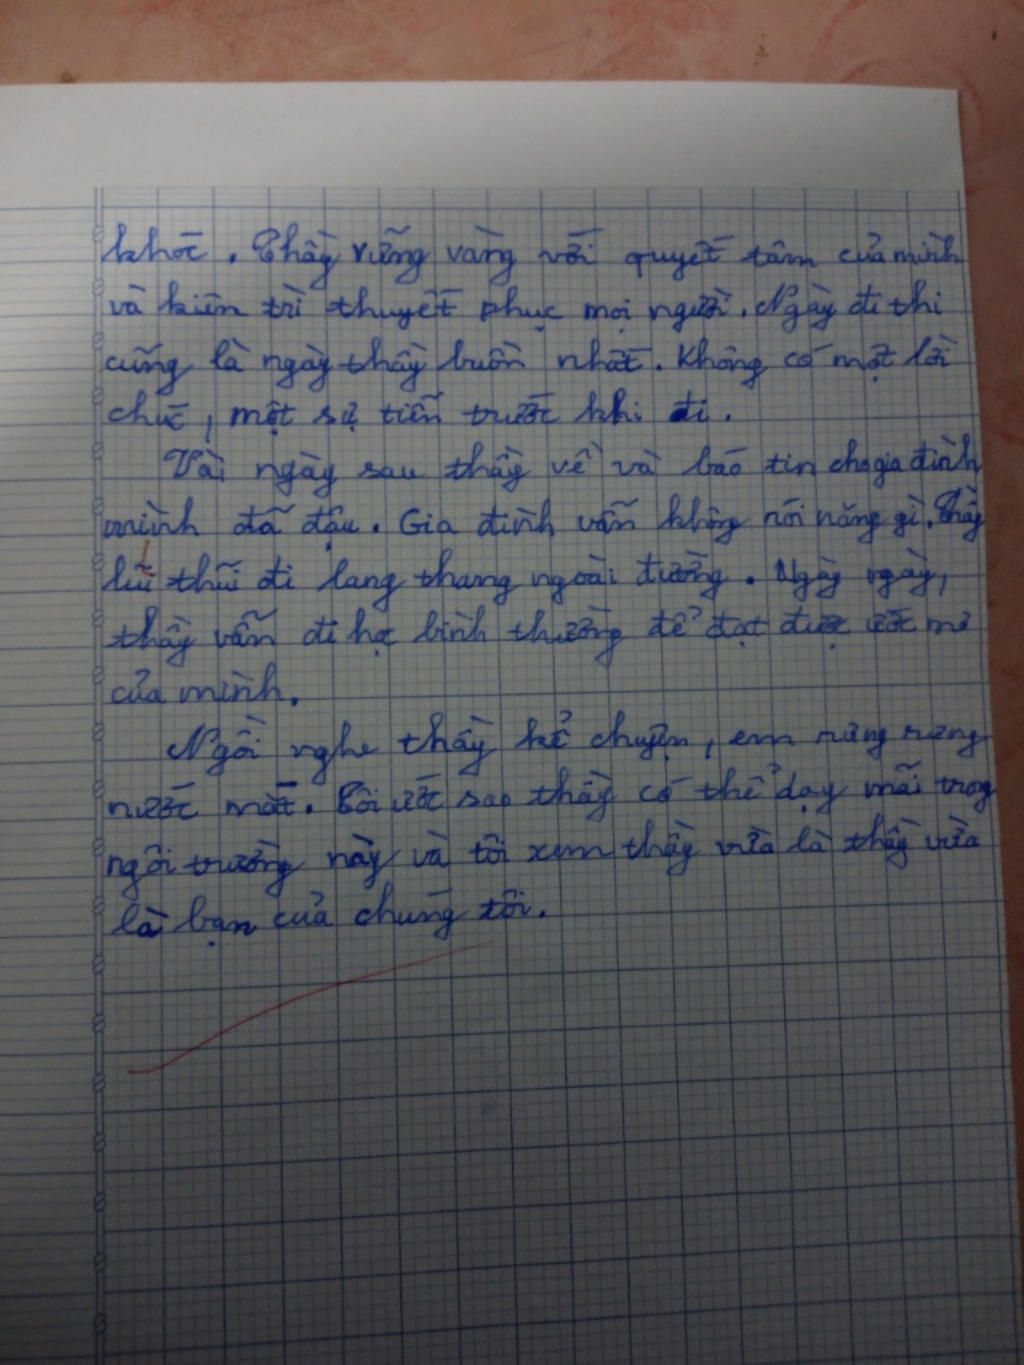 khóc. Thầy vững vàng với quyết tâm của mình
và kiên trì thuyết phục mọi người. Ngày đi thi
cũng là ngày thầy buồn nhất. Không có một lời
chúc, một sự tiễn trước khi đi.
Vài ngày sau thầy về và báo tin cho gia đình
mình đã đậu. Gia đình vẫn không nói năng gì. Thầy
lũi thũi đi lang thang ngoài đường. Ngày ngày,
thầy vẫn đi học bình thường để đạt được ước mơ
của mình.
Ngồi nghe thầy kể chuyện, em rưng rưng
nước mắt. Tôi ước sao thầy có thể dạy mãi trong
ngôi trường này và tôi xem thầy vừa là thầy vừa
là bạn của chúng tôi.